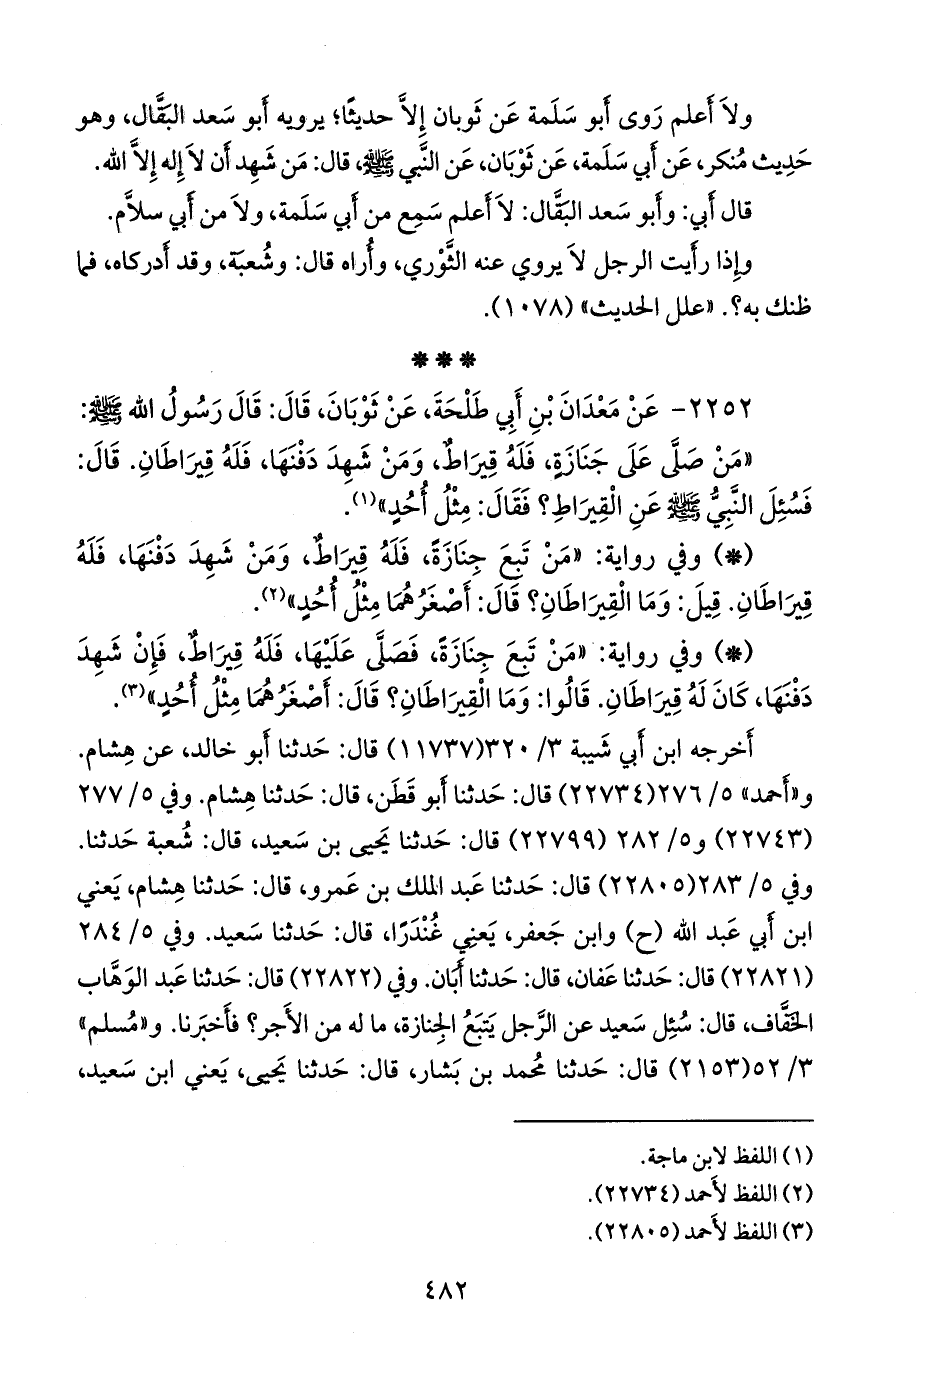 ولاَ أَعلم رَوى أَبو سَلَمة عَن ثَوبان إِلاَّ حديثًا؛ يرويه أَبو سَعد البَقَّال، وهو
حَدِيث مُنكر، عَن أَبي سَلَمة، عَن ثَوْبَان، عَن النَّبي ﷺ، قال: مَن شَهِد أَن لاَ إِله إِلاَّ الله.
قال أَبي: وأَبو سَعد البَقَّال: لاَ أَعلم سَمِع من أَبي سَلَمة، ولاَ من أَبي سلاَّم.
وإِذا رأَيت الرجل لاَ يروي عنه الثَّوْري، وأُراه قال: وشُعبَة، وقد أَدركاه، فما
ظنك به؟. «علل الحديث» (١٠٧٨).
***
٢٢٥٢- عَنْ مَعْدَانَ بْنِ أَبِي طَلْحَةَ، عَنْ ثَوْبَانَ، قَالَ: قَالَ رَسُولُ الله ﷺ:
«مَنْ صَلَّى عَلَى جَنَازَةٍ، فَلَهُ قِيرَاطٌ، وَمَنْ شَهِدَ دَفْنَهَا، فَلَهُ قِيرَاطَانِ. قَالَ:
فَسُئِلَ النَّبِيُّ ﷺ عَنِ الْقِيرَاطِ؟ فَقَالَ: مِثْلُ أُحُدٍ»(١).
(*) وفي رواية: «مَنْ تَبِعَ جِنَازَةً، فَلَهُ قِيرَاطٌ، وَمَنْ شَهِدَ دَفْنَهَا، فَلَهُ
قِيرَاطَانِ. قِيلَ: وَمَا الْقِيرَاطَانِ؟ قَالَ: أَصْغَرُهُمَا مِثْلُ أُحُدٍ»(٢).
(*) وفي رواية: «مَنْ تَبِعَ جِنَازَةً، فَصَلَّى عَلَيْهَا، فَلَهُ قِيرَاطٌ، فَإِنْ شَهِدَ
دَفْنَهَا، كَانَ لَهُ قِيرَاطَانِ. قَالُوا: وَمَا الْقِيرَاطَانِ؟ قَالَ: أَصْغَرُهُمَا مِثْلُ أُحُدٍ»(٣).
أَخرجه ابن أَبي شَيبة ٣/ ٣٢٠(١١٧٣٧) قال: حَدثنا أَبو خالد، عن هِشام.
و«أَحمد» ٥/ ٢٧٦(٢٢٧٣٤) قال: حَدثنا أَبو قَطَن، قال: حَدثنا هِشام. وفي ٥/ ٢٧٧
(٢٢٧٤٣) و٥/ ٢٨٢ (٢٢٧٩٩) قال: حَدثنا يَحيى بن سَعيد، قال: شُعبة حَدثنا.
وفي ٥/ ٢٨٣(٢٢٨٠٥) قال: حَدثنا عَبد الملك بن عَمرو، قال: حَدثنا هِشام، يَعني
ابن أَبي عَبد الله (ح) وابن جَعفر، يَعنِي غُنْدَرًا، قال: حَدثنا سَعيد. وفي ٥/ ٢٨٤
(٢٢٨٢١) قال: حَدثنا عَفان، قال: حَدثنا أَبَان. وفي (٢٢٨٢٢) قال: حَدثنا عَبد الوَهَّاب
الخَفَّاف، قال: سُئِل سَعيد عن الرَّجل يَتبَعُ الجِنازة، ما له من الأَجر؟ فأَخبَرنا. و«مُسلم»
٣/ ٥٢(٢١٥٣) قال: حَدثنا مُحمد بن بَشار، قال: حَدثنا يَحيى، يَعني ابن سَعيد،
(١) اللفظ لابن ماجة.
(٢) اللفظ لأَحمد (٢٢٧٣٤).
(٣) اللفظ لأَحمد (٢٢٨٠٥).
٤٨٢